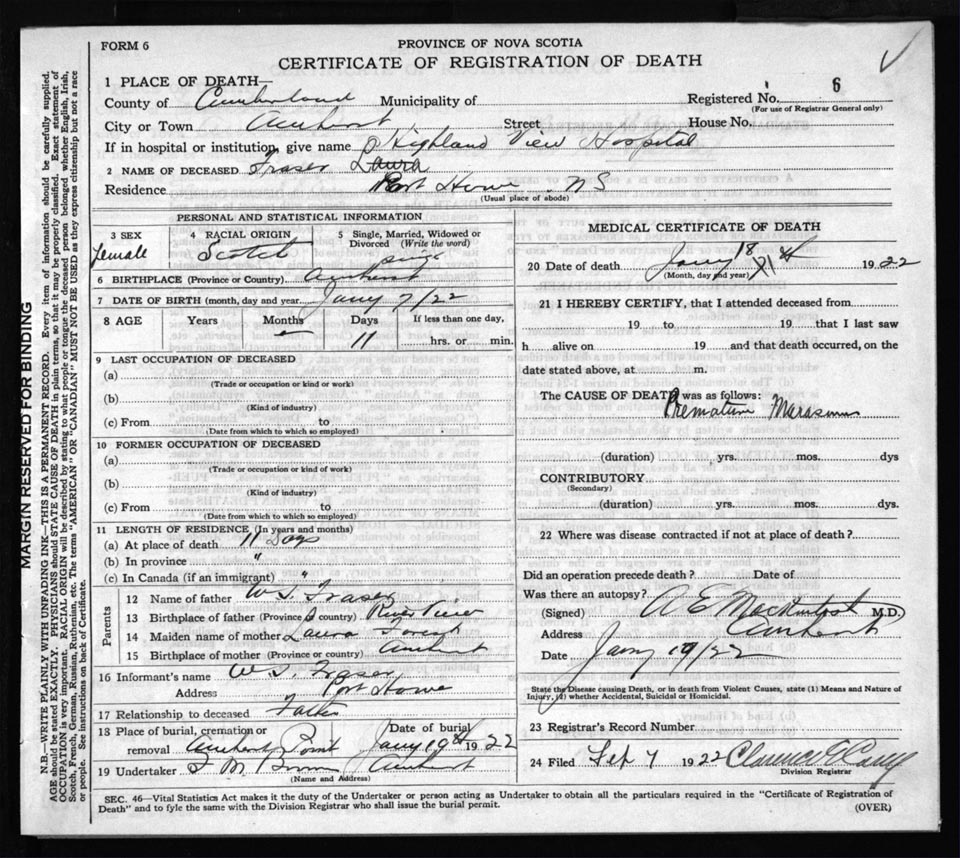 FORM 6
PROVINCE OF NOVA SCOTIA
CERTIFICATE OF REGISTRATION OF DEATH
1 PLACE OF DEATH—
County of Cumberland Municipality of
Registered No. 6
(For use of Registrar General only)
City or Town Amherst Street House No.
If in hospital or institution, give name Highland View Hospital
2 NAME OF DECEASED Fraser Laura
Residence Port Howe NS
(Usual place of abode)
PERSONAL AND STATISTICAL INFORMATION
3 SEX
Female
4 RACIAL ORIGIN
Scotch
5 Single, Married, Widowed or Divorced (Write the word)
single
6 BIRTHPLACE (Province or Country) Amherst
7 DATE OF BIRTH (month, day and year) Jany 7/22
8 AGE Years Months Days If less than one day,
11 hrs. or min.
9 LAST OCCUPATION OF DECEASED
(a)
(Trade or occupation or kind or work)
(b)
(Kind of industry)
(c) From to
(Date from which to which so employed)
10 FORMER OCCUPATION OF DECEASED
(a)
(Trade or occupation or kind of work)
(b)
(Kind of industry)
(c) From to
(Date from which to which so employed)
11 LENGTH OF RESIDENCE (In years and months)
(a) At place of death 11 Days
(b) In province "
(c) In Canada (if an immigrant) "
Parents
12 Name of father W. Fraser
13 Birthplace of father (Province or country) River View
14 Maiden name of mother Laura
15 Birthplace of mother (Province or country) Amherst
16 Informant's name W. Fraser
Address Port Howe
17 Relationship to deceased Father
18 Place of burial, cremation or removal Amherst Point
Date of burial Jany 19th 1922
19 Undertaker Amherst
(Name and Address)
MEDICAL CERTIFICATE OF DEATH
20 Date of death Jany 18 1922
(Month, day and year)
21 I HEREBY CERTIFY, that I attended deceased from
19 to 19 that I last saw
h alive on 19 and that death occurred, on the
date stated above, at m.
The CAUSE OF DEATH was as follows:
Premature Marasmus
(duration) yrs. mos. dys
CONTRIBUTORY
(Secondary)
(duration) yrs. mos. dys.
22 Where was disease contracted if not at place of death?
Did an operation precede death? Date of
Was there an autopsy?
(Signed) A E MacKintosh M.D.
Address Amherst
Date Jany 19/22
State the Disease causing Death, or in death from Violent Causes, state (1) Means and Nature of
Injury, (2) whether Accidental, Suicidal or Homicidal.
23 Registrar's Record Number
24 Filed Feb 7 1922 Clarence
Division Registrar
SEC. 46—Vital Statistics Act makes it the duty of the Undertaker or person acting as Undertaker to obtain all the particulars required in the "Certificate of Registration of
Death" and to fyle the same with the Division Registrar who shall issue the burial permit.
(OVER)
MARGIN RESERVED FOR BINDING
N.B.—WRITE PLAINLY WITH UNFADING INK—THIS IS A PERMANENT RECORD. Every item of information should be carefully supplied.
AGE should be stated EXACTLY. PHYSICIANS should STATE CAUSE OF DEATH in plain terms, so that it may be properly classified. Exact statement of
OCCUPATION is very important. RACIAL ORIGIN will be described by stating to what people or tongue the deceased person belonged whether English, Irish,
Scotch, French, German, Russian, Ruthenian, etc. The terms "AMERICAN" OR "CANADIAN" MUST NOT BE USED as they express citizenship but not a race
or people. See instructions on back of Certificate.